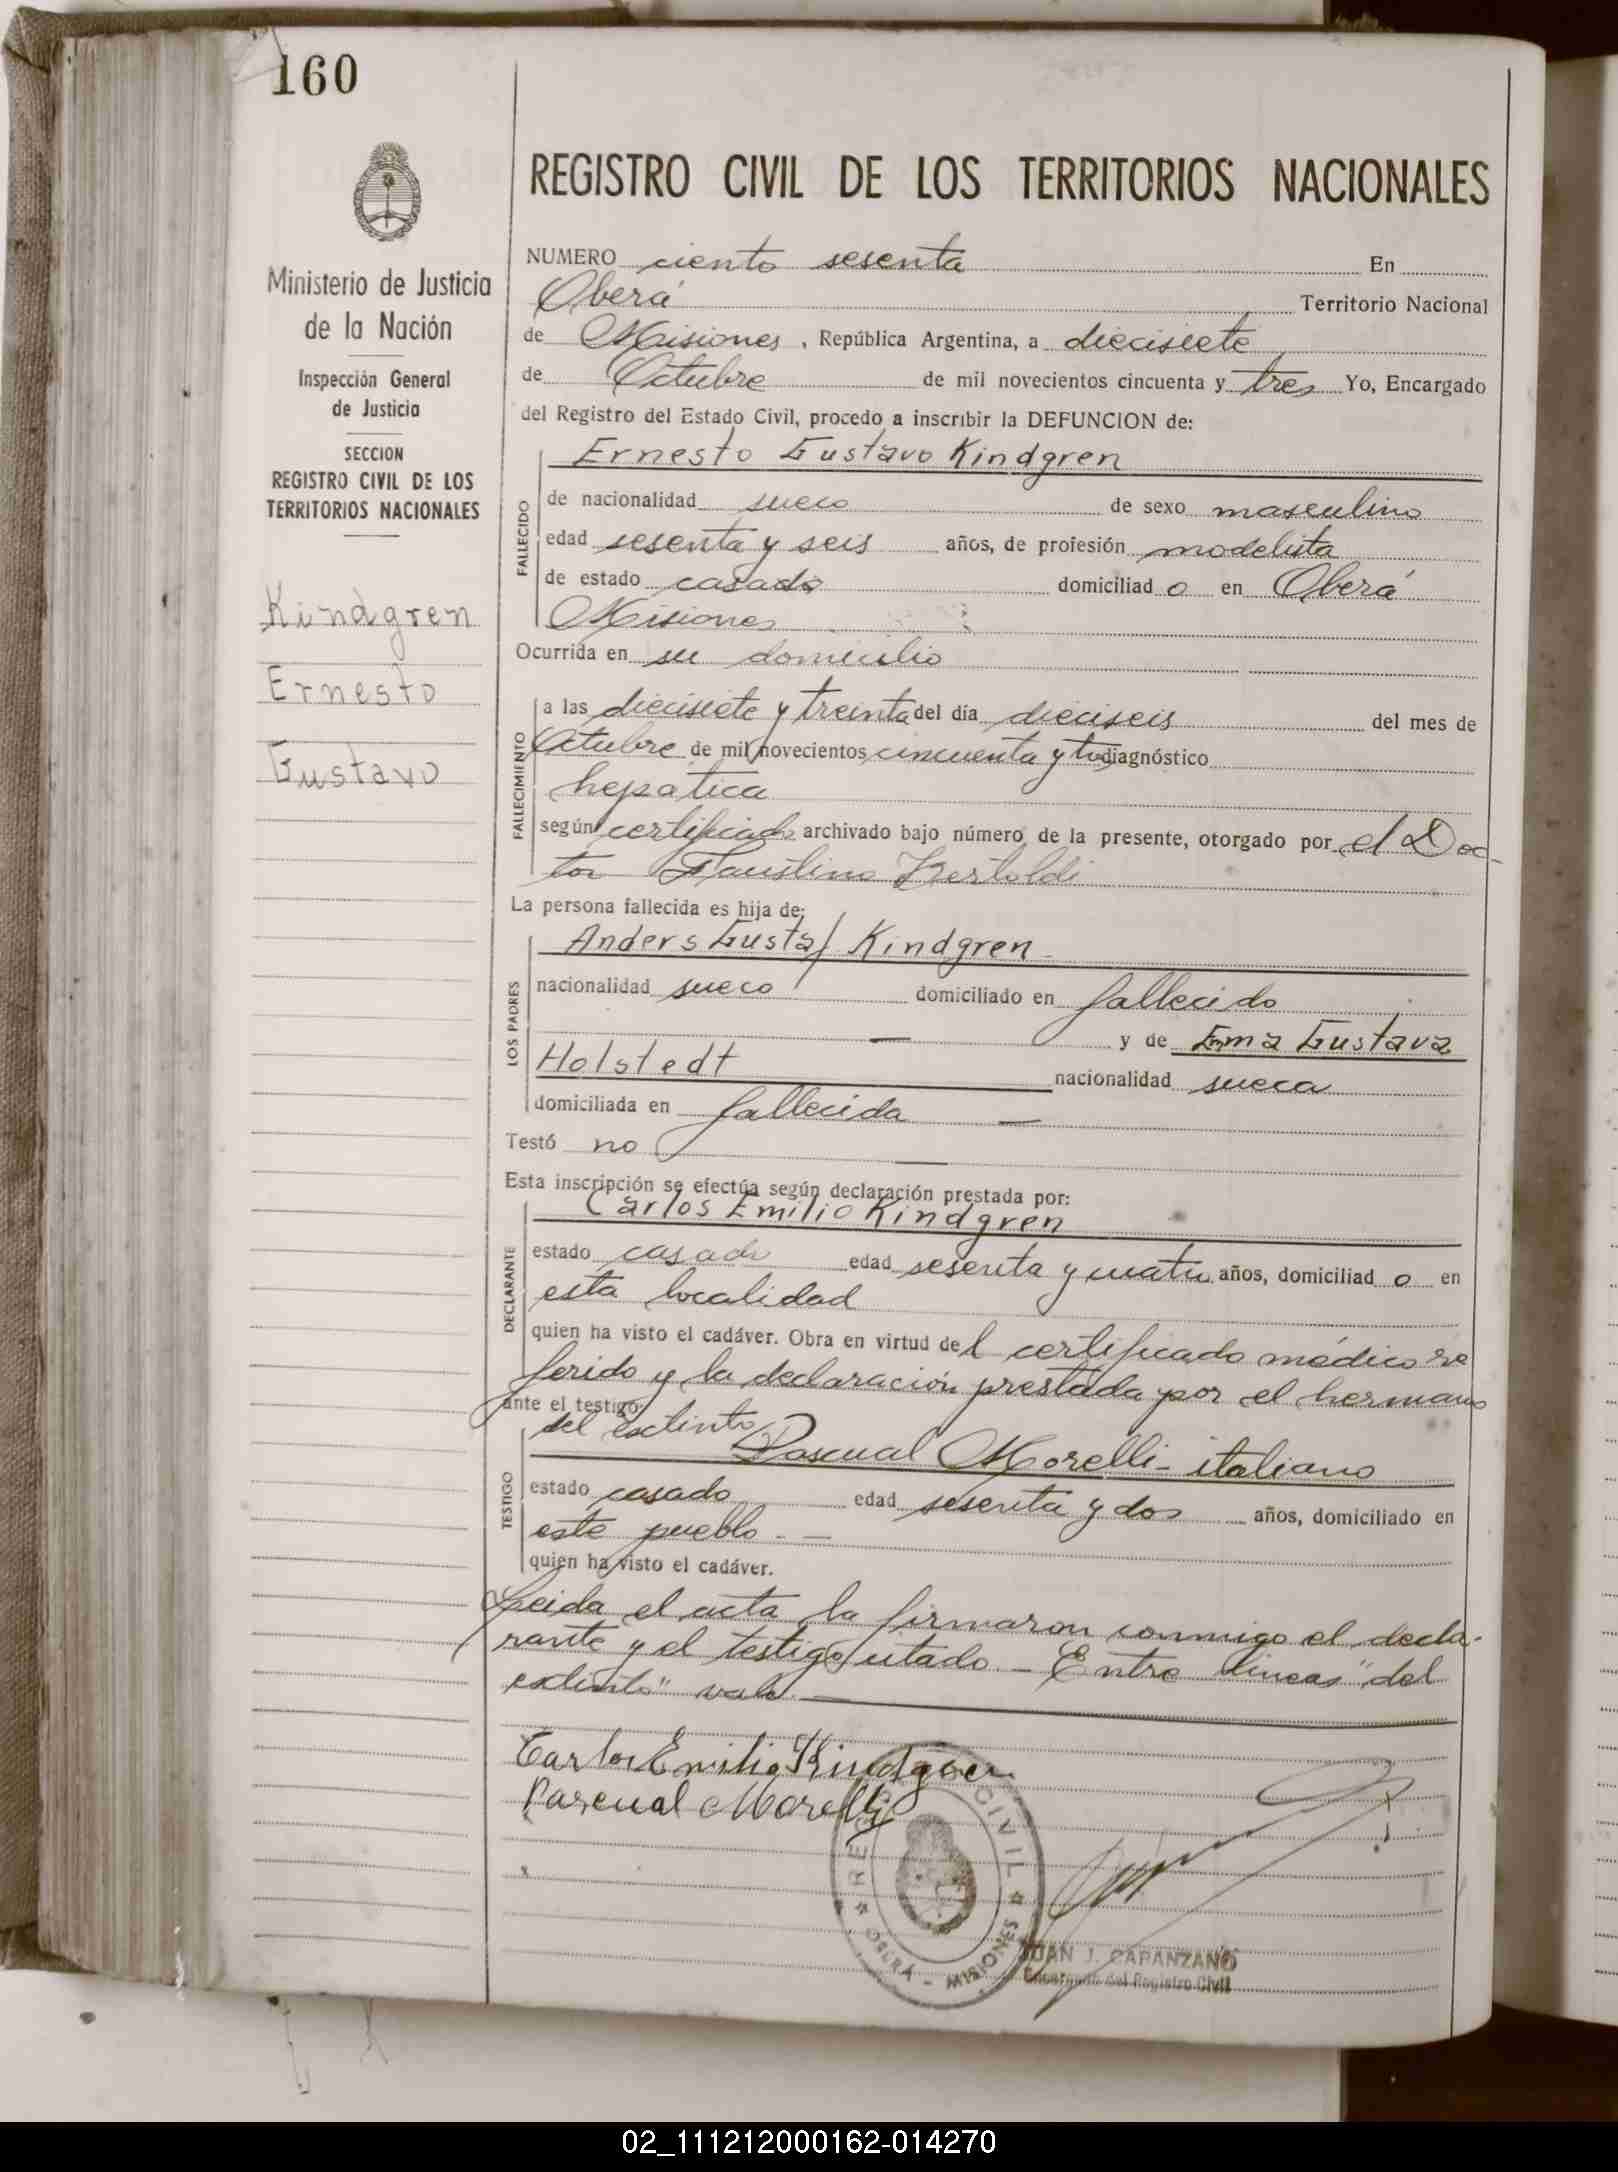 160
Ministerio de Justicia
de la Nación
Inspección General
de Justicia
SECCION
REGISTRO CIVIL DE LOS
TERRITORIOS NACIONALES
Kindgren
Ernesto
Gustavo
REGISTRO CIVIL DE LOS TERRITORIOS NACIONALES
NUMERO ciento sesenta En
Oberá Territorio Nacional
de Misiones, República Argentina, a diecisiete
de Octubre de mil novecientos cincuenta y tres Yo, Encargado
del Registro del Estado Civil, procedo a inscribir la DEFUNCION de:
Ernesto Gustavo Kindgren
FALLECIDO
de nacionalidad sueco de sexo masculino
edad sesenta y seis años, de profesión modelista
de estado casado domiciliad o en Oberá
Misiones
Ocurrida en su domicilio
FALLECIMIENTO
a las diecisiete y treinta del día dieciseis del mes de
Octubre de mil novecientos cincuenta y tres diagnóstico
hepatica
según certificado archivado bajo número de la presente, otorgado por el Doc-
tor Faustino Bertoldi
La persona fallecida es hija de:
LOS PADRES
Anders Gustaf Kindgren
nacionalidad sueco domiciliado en fallecido
— y de Emma Gustava
Holstedt nacionalidad sueca
domiciliada en fallecida —
Testó no —
Esta inscripción se efectúa según declaración prestada por:
DECLARANTE
Carlos Emilio Kindgren
estado casado edad sesenta y cuatro años, domiciliad o en
esta localidad
quien ha visto el cadáver. Obra en virtud del certificado médico re
ferido y la declaración prestada por el hermano
ante el testigo:
del extinto
TESTIGO
Pascual Morelli - italiano
estado casado edad sesenta y dos años, domiciliado en
este pueblo. —
quien ha visto el cadáver.
Leida el acta la firmaron conmigo el decla-
rante y el testigo citado. - Entre lineas "del
extinto" vale. —
Carlos Emilio Kindgren
Pascual Morelli
CIVIL
OBERÁ - MISIONES
JUAN J. CAPANZANO
Encargado del Registro Civil
02_111212000162-014270